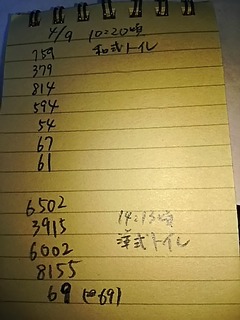 4/9 10:20頃
759 和式トイレ
379
814
594
54
67
61
6502
3915 14:13頃
6002 洋式トイレ
8155
69 (面69)